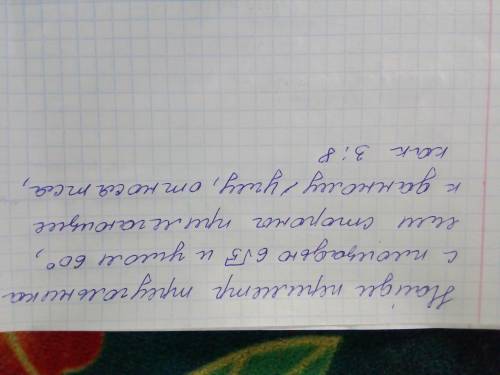 Найди периметр треугольника
с площадью 6√3 и углом 60°,
если стороны прилегающие
к данному углу, относятся,
как 3:8